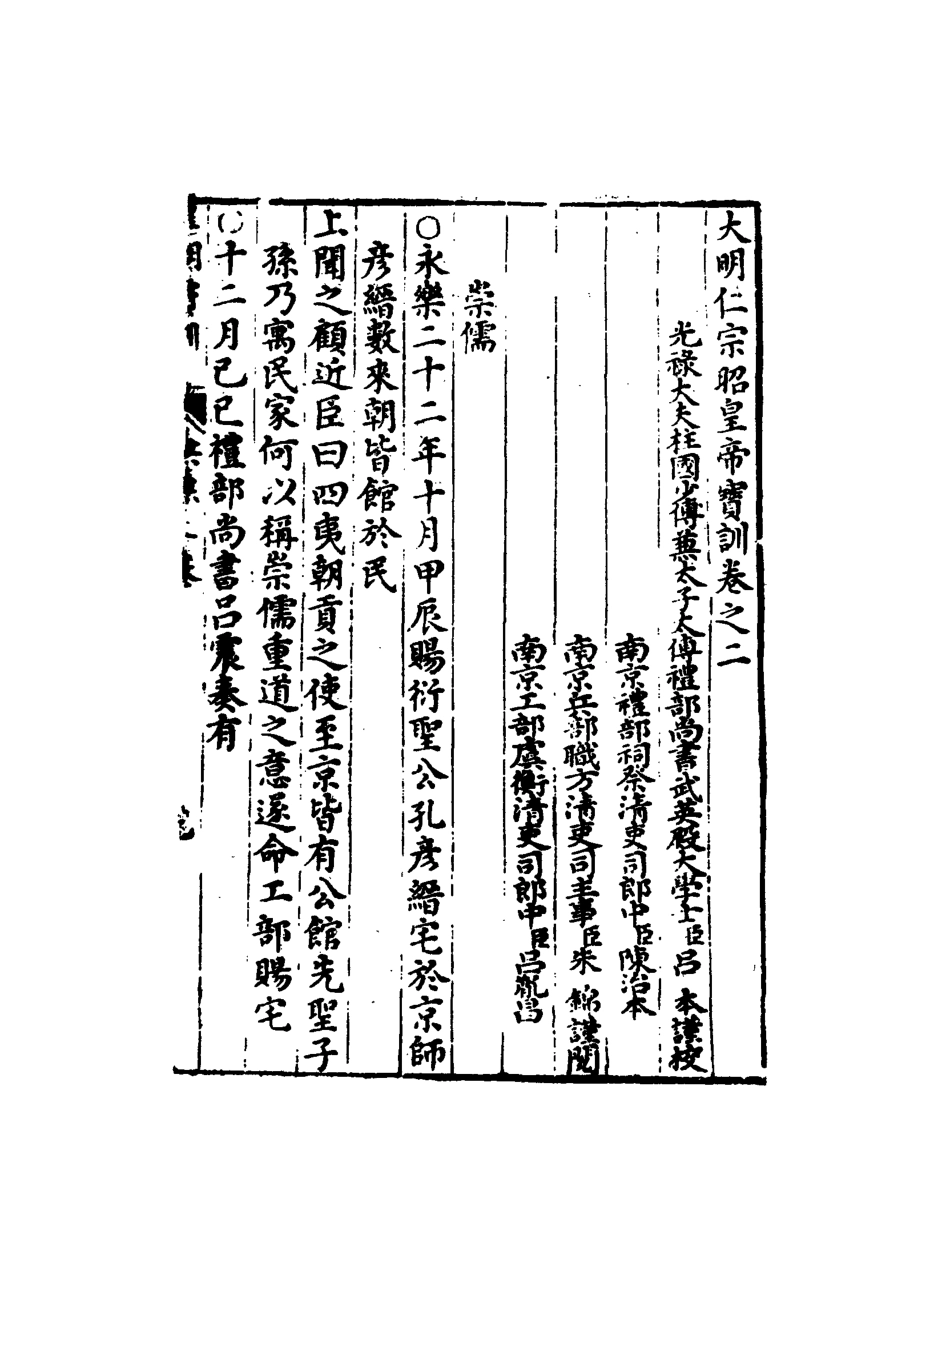 大明仁宗昭皇帝寶訓卷之二
光祿大夫柱國少傅兼太子太傅禮部尚書武英殿大學士臣呂本謹校
南京禮部祠祭清吏司郎中臣陳治本
南京兵部職方清吏司主事臣朱錦謹閱
南京工部虞衡清吏司郎中臣呂胤昌
崇儒
○永樂二十二年十月甲辰賜衍聖公孔彥縉宅於京師
彥縉數來朝皆館於民
上聞之顧近臣曰四夷朝貢之使至京皆有公館先聖子
孫乃寓民家何以稱崇儒重道之意遂命工部賜宅
○十二月己巳禮部尚書呂震奏有